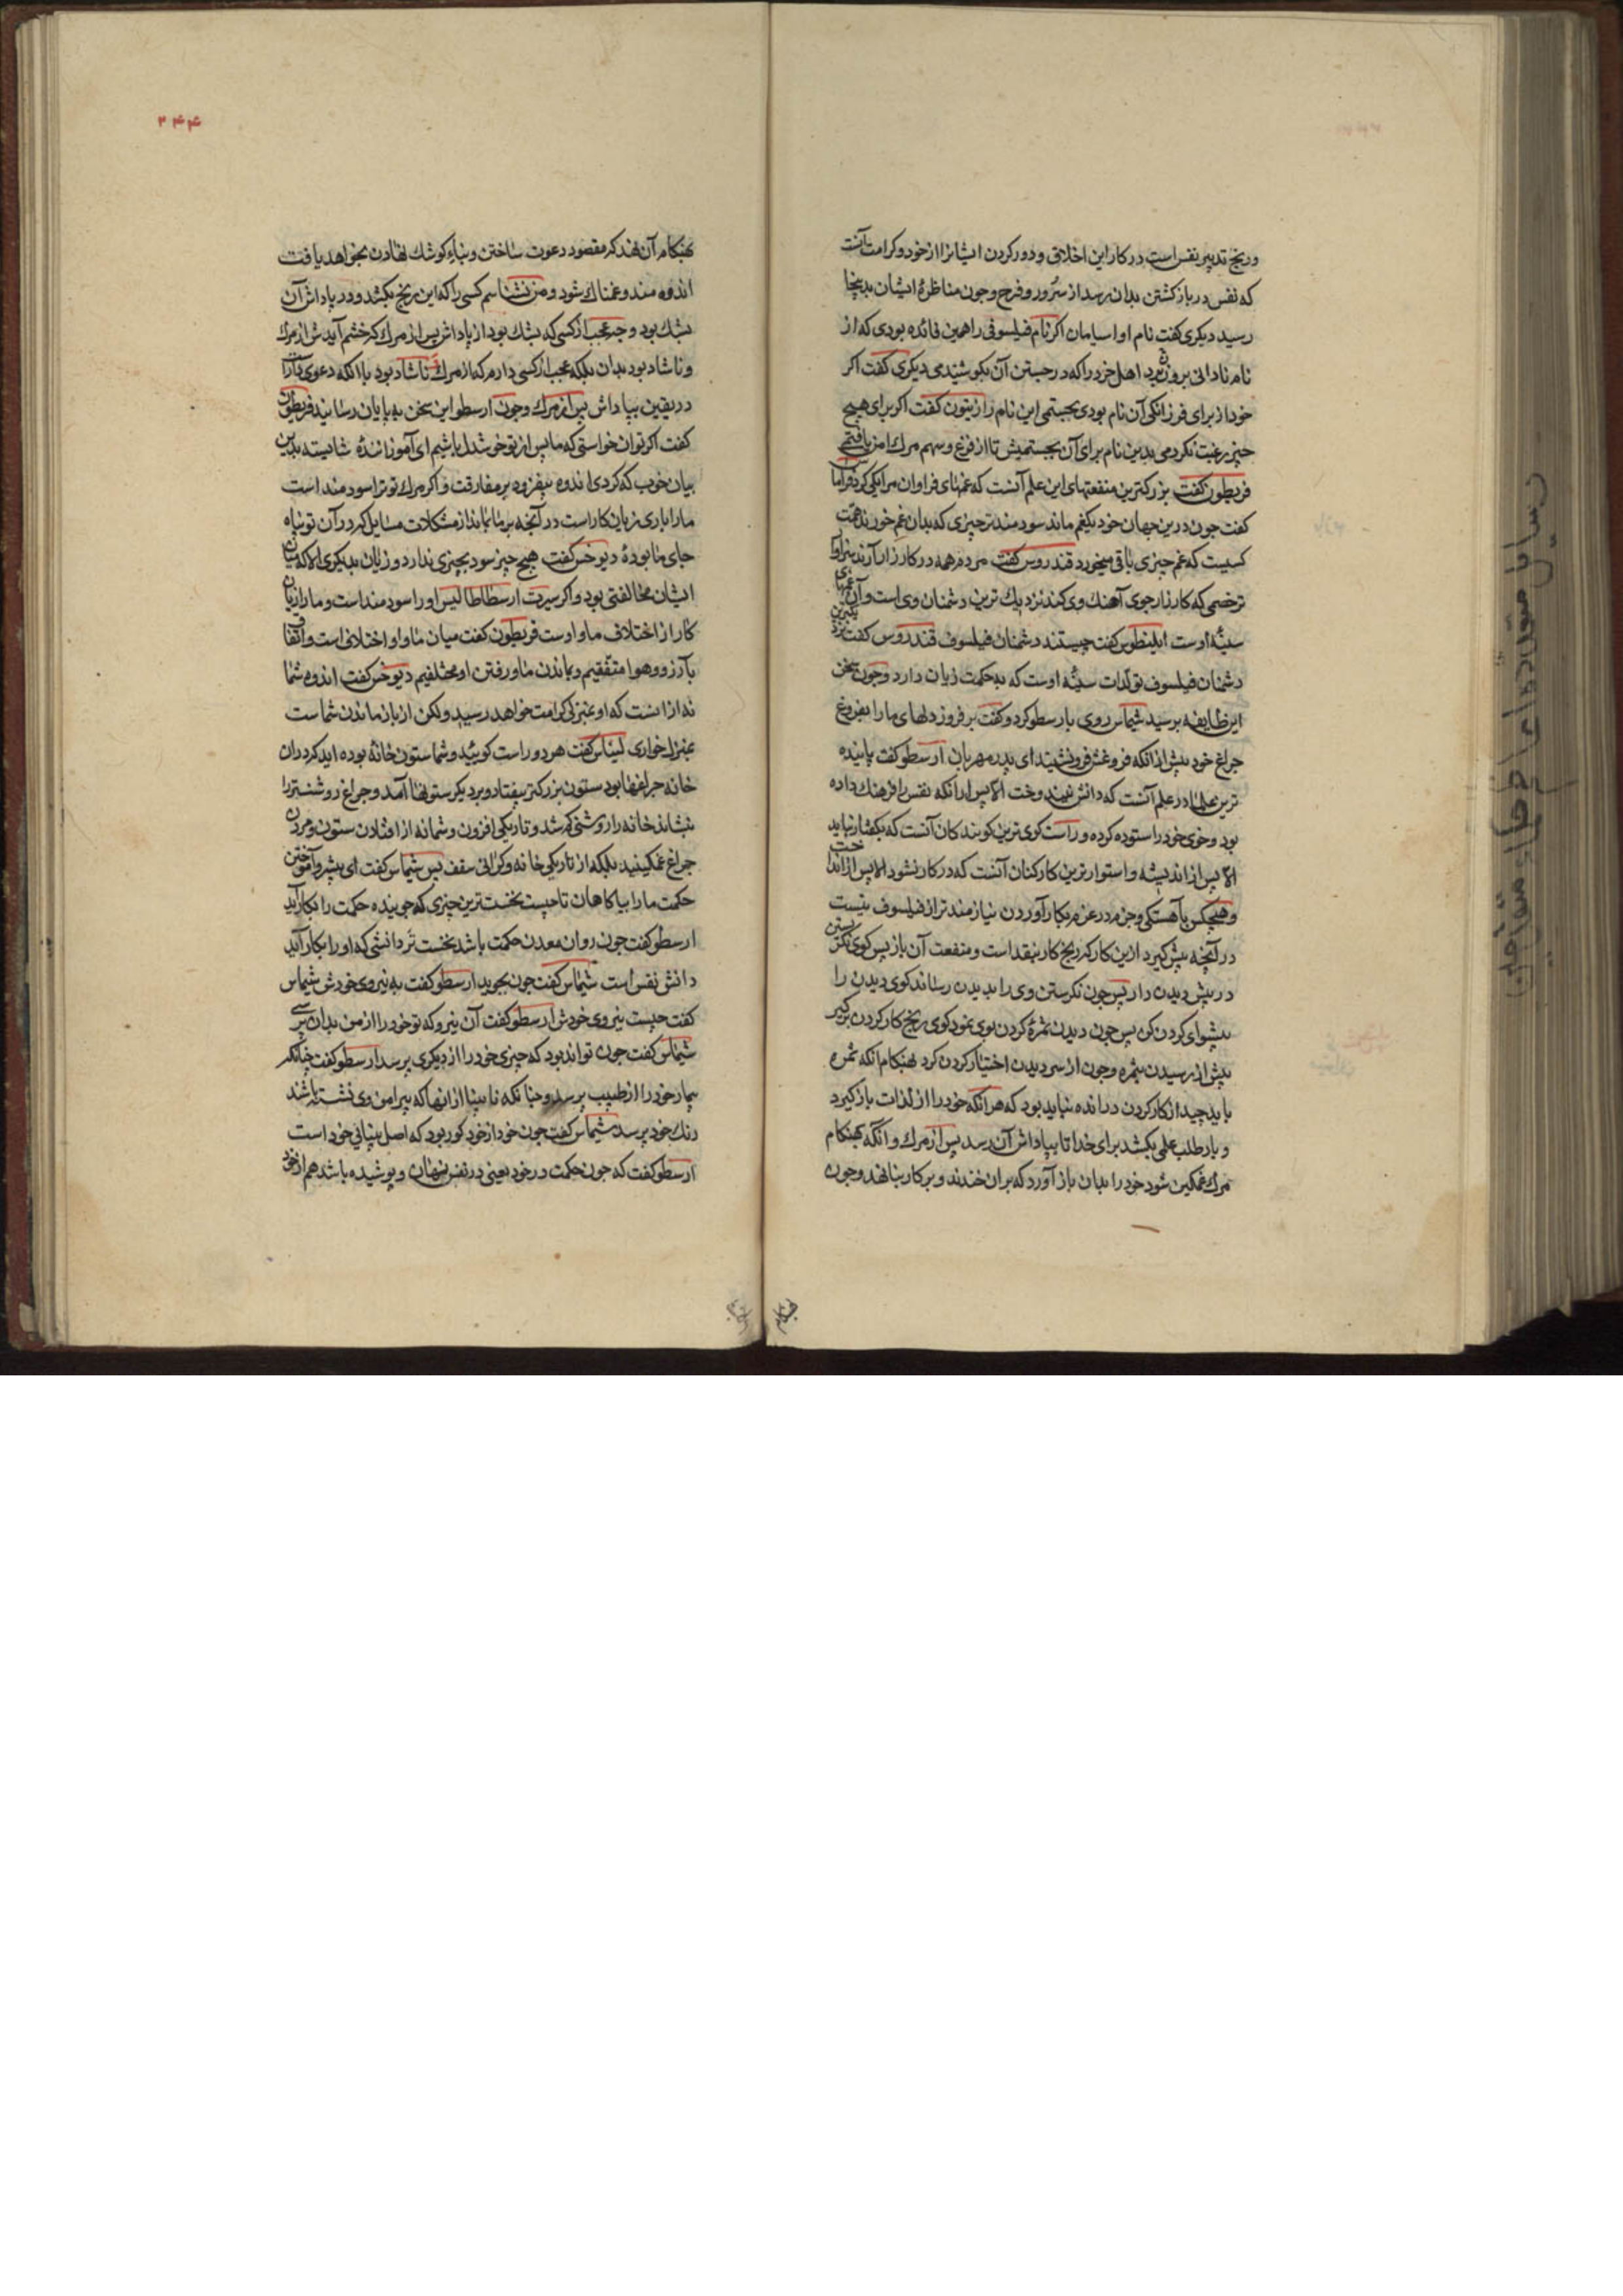 ورنج تدبیر نفس است در کار این اخلاق و دور کردن ایشانرا از خود وکرامت آنست
که نفس در بازکشتن بدان رسد از سرور و فرح وچون مناظرهٔ ایشان بدینجا
رسید دیکری کفت نام او اسیامان اکر نام فیلسوفی را همین فائده بودی که از
نام نادانی برون برد اهل خرد را که در جستن آن بکوشیدمی دیکری کفت اکر
خود از برای فرزانکی آن نام بودی بجستمی این نام را زیتون کفت اکر برای هیچ
چیز رغبت نکردمی بدین نام برای آن بجستمیش تا از فزع وسهم مرك امن یافتمی
فریطون کفت بزرکترین منفعتهای این علم آنست که غمهای فراوان مرا یکی کرد
کفت چون درین جهان خود یکغم ماند سودمندتر چیزی که بدان غم خورند همت
کسیست که غم چیزی باقی میخورد قندروس کفت مردم همه در کارزارآرند سزاوا
ترخصمی که کارزارجوی آهنك وی کند نزدیك ترین دشمنان وی است وآن غمهای
سینهٔ اوست ایلینطوس کفت چیستند دشمنان فیلسوف قندروس کفت نزدیکترین
دشمنان فیلسوف تولدات سینهٔ اوست که بحکمت زیان دارد وچون سخن
این طایفه برسید شیماس روی بارسطو کرد وکفت برفروز دلهای ما را بفروغ
چراغ خود پیش از انکه فروغش فرونشیند ای پدر مهربان ارسطو کفت پاینده
ترین علمها در علم آنست که دانش نیندوخت الا پس ازانکه نفس را فرهنك داده
بود وخوی خود را ستوده کرده و راست کوی ترین کویندکان آنست که بکفتار نیاید
الا پس از اندیشه و استوارترین کارکنان آنست که در کار نشود الا پس از
وهیچکس بآهستکی وحزم در عزم بکار آوردن نیازمندتر از فیلسوف نیست
در آنچه پیش کیرد ازین کار که رنج کار بنقد است ومنفعت آن بازپس کوی نکریستن
در پیش دیدن دار پس چون نکرستن وی را بدیدن رساند کوی دیدن را
پیشوای کردن کن پس چون دیدن ثمرهٔ کردن بوی نمود کوی رنج کار کردن برکیر
پیش از رسیدن بثمره وچون از سر دیدن اختیار کردن کرد هنکام انکه ثمره
باید چید از کار کردن درمانده نباید بود که هرانکه خود را از لذات بازکیرد
و بار طلب علم بکشد برای خدا تا بپاداش آن رسد پس از مرك وانکه بهنکام
مرك غمکین شود خود را بدان باز آورد که بران خندند و برکار بنا نهد وچون
۲۴۴
بهنکام آن نهد که مقصود دعوت ساختن و بناء کوشك نهادن بخواهد یافت
اندوه مند وغمناك شود و من نشناسم کسی را که این رنج بکشد و در پاداش آن
بشك بود وچه عجب از کسی که بشك بود از پاداش پس از مرك که خشم آیدش از مرك
و ناشاد بود بدان بلکه عجب از کسی دارم که از مرك ناشاد بود با انکه دعوی دارد
در یقین بپاداش پس از مرك وچون ارسطو این سخن به پایان رسانید فریطون
کفت اکر توان خواستی که ما پس از تو خوشدل باشیم ای آموزانندهٔ شایسته بدین
بیان خوب که کردی اندوه بیفزود بر مفارقت و اکر مرك تو ترا سودمند است
مارا باری زیان کار است در آنچه بر ما بماند از مشکلات مسایل که در آن تو پناه
جای ما بودهٔ دیوخس کفت هیچ چیز سود بچیزی ندارد و زیان بدیکری الا که میان
ایشان مخالفتی بود و اکر سیرت ارسطاطالیس او را سودمند است و ما را زیان
کار از اختلاف ما و اوست فریطون کفت میان ما و او اختلافی است و اتفاق
بآرزو وهوا متفقیم و بماندن ما و رفتن او مختلفیم دیوخس کفت اندوه شما
نه از انست که او بمنزل کرامت خواهد رسید ولکن از باز ماندن شماست
بمنزل خواری لیناس کفت هر دو راست کویید و شما ستون خانهٔ بوده اید که دران
خانه چراغها بود ستون بزرکتر بیفتاد و بر دیکر ستونها آمد و چراغ روشنتر را
بنشاند خانه را روشنی کم شد و تاریکی افزون و شما نه از افتادن ستون و مردن
چراغ غمکینید بلکه از تاریکی خانه وکرانی سقف پس شیماس کفت ای پیشرو آموختن
حکمت ما را بیاکاهان تا چیست نخست ترین چیزی که جوینده حکمت را بکار آید
ارسطو کفت چون روان معدن حکمت باشد نخست تر دانشی که او را بکار آید
دانش نفس است شیماس کفت چون بجوید ارسطو کفت به نیروی خودش شیماس
کفت چیست نیروی خودش ارسطو کفت آن نیرو که تو خود را از من بدان پرسی
شیماس کفت چون تواند بود که چیزی خود را از دیکری پرسد ارسطو کفت چنانکه
بیمار خود را از طبیب پرسد وچنانکه نابینا از انها که پیرامن وی نشسته باشند
رنك خود پرسد شیماس کفت چون خود از خود کور بود که اصل بینائی خود است
ارسطو کفت که چون حکمت در خود یعنی در نفس پنهان و پوشیده باشد هم از خود